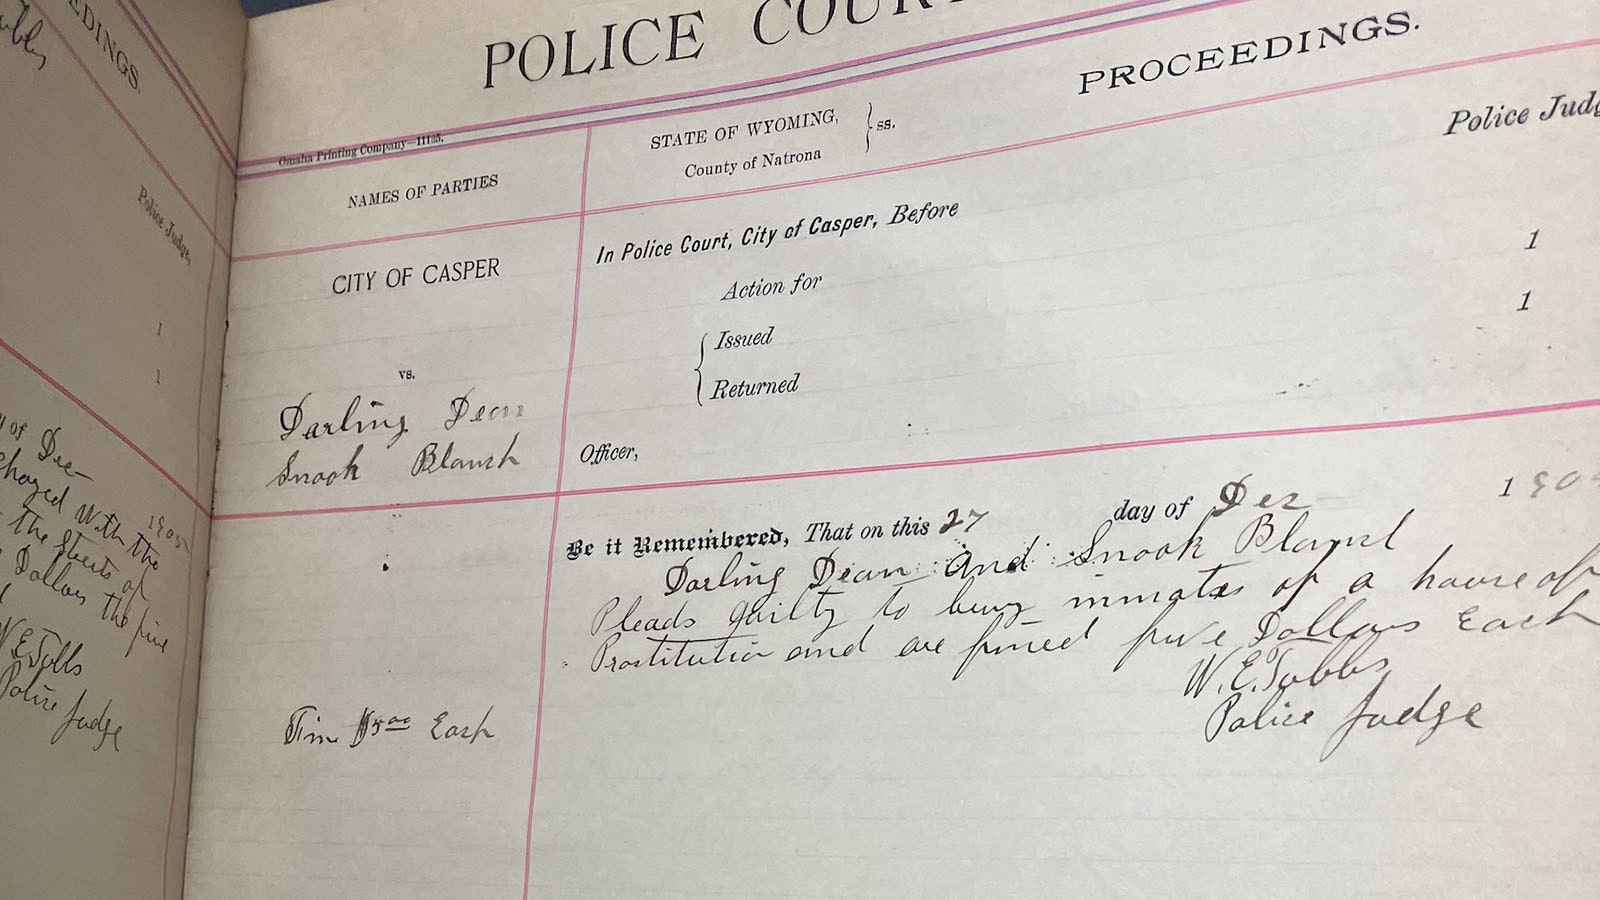 POLICE COUR
PROCEEDINGS.
Omaha Printing Company—11135.
NAMES OF PARTIES
STATE OF WYOMING,
County of Natrona
ss.
Police Judg
CITY OF CASPER
In Police Court, City of Casper, Before
Action for
1
Issued
1
Returned
vs.
Darling Dean
Snook Blansh
Officer,
Be it Remembered, That on this 27 day of Dec 190
Darling Dean and Snook Blansh
Pleads guilty to being inmates of a house of
Prostitution and are fined five Dollars Each
W. E. Tubbs
Police Judge
$5.00 Each
EDINGS.
Police Judge,
1
1
of Dec 1905
chaged With the
the Streets of
Dollars the fine
W E Tubbs
Police Judge